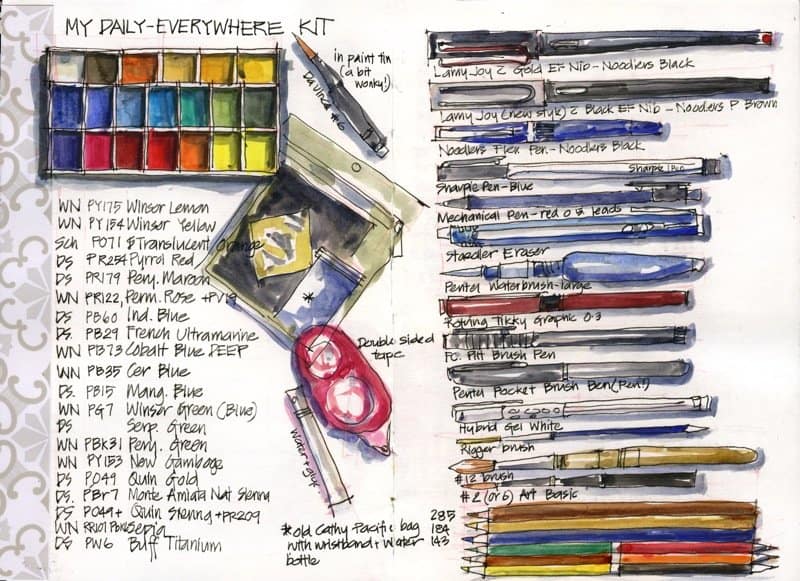 MY DAILY-EVERYWHERE KIT
in paint tin
(a bit
wonky!)
Da Vinci #6
WN PY175 Winsor Lemon
WN PY154 Winsor Yellow
Sch PO71 Translucent Orange
DS PR254 Pyrrol Red
DS PR179 Pery. Maroon
WN PR122, Perm. Rose + PV19
DS PB60 Ind. Blue
DS. PB29 French Ultramarine
WN PB73 Cobalt Blue DEEP
WN PB35 Cer Blue
DS. PB15 Mang. Blue
WN PG7 Winsor Green (Blue)
DS Serp. Green
WN PBK31 Pery. Green
WN PY153 New Gamboge
DS. PO49 Quin Gold
DS. PBr7 Monte Amiata Nat Sienna
DS PO49+ Quin Sienna + PR209
WN Sepia
DS PW6 Buff Titanium
*
Double sided
tape
Water + glue
*old Cathy Pacific bag
with wristband + water
bottle
Lamy Joy c Gold EF Nib - Noodlers Black
Lamy Joy (new style) c Black EF Nib - Noodlers P Brown
Noodlers Flex Pen - Noodlers Black
Sharpie Pen
Sharpie Pen - Blue
Mechanical Pen - red 0.5 leads
Staedler Eraser
Pentel Waterbrush - large
Rotring Tikky Graphic 0.3
FC. Pitt Brush Pen
Pentel Pocket Brush Ben (Pen!)
Hybrid Gel White
Rigger brush
#12 brush
#2 (or 6) Art Basic
285
184
143